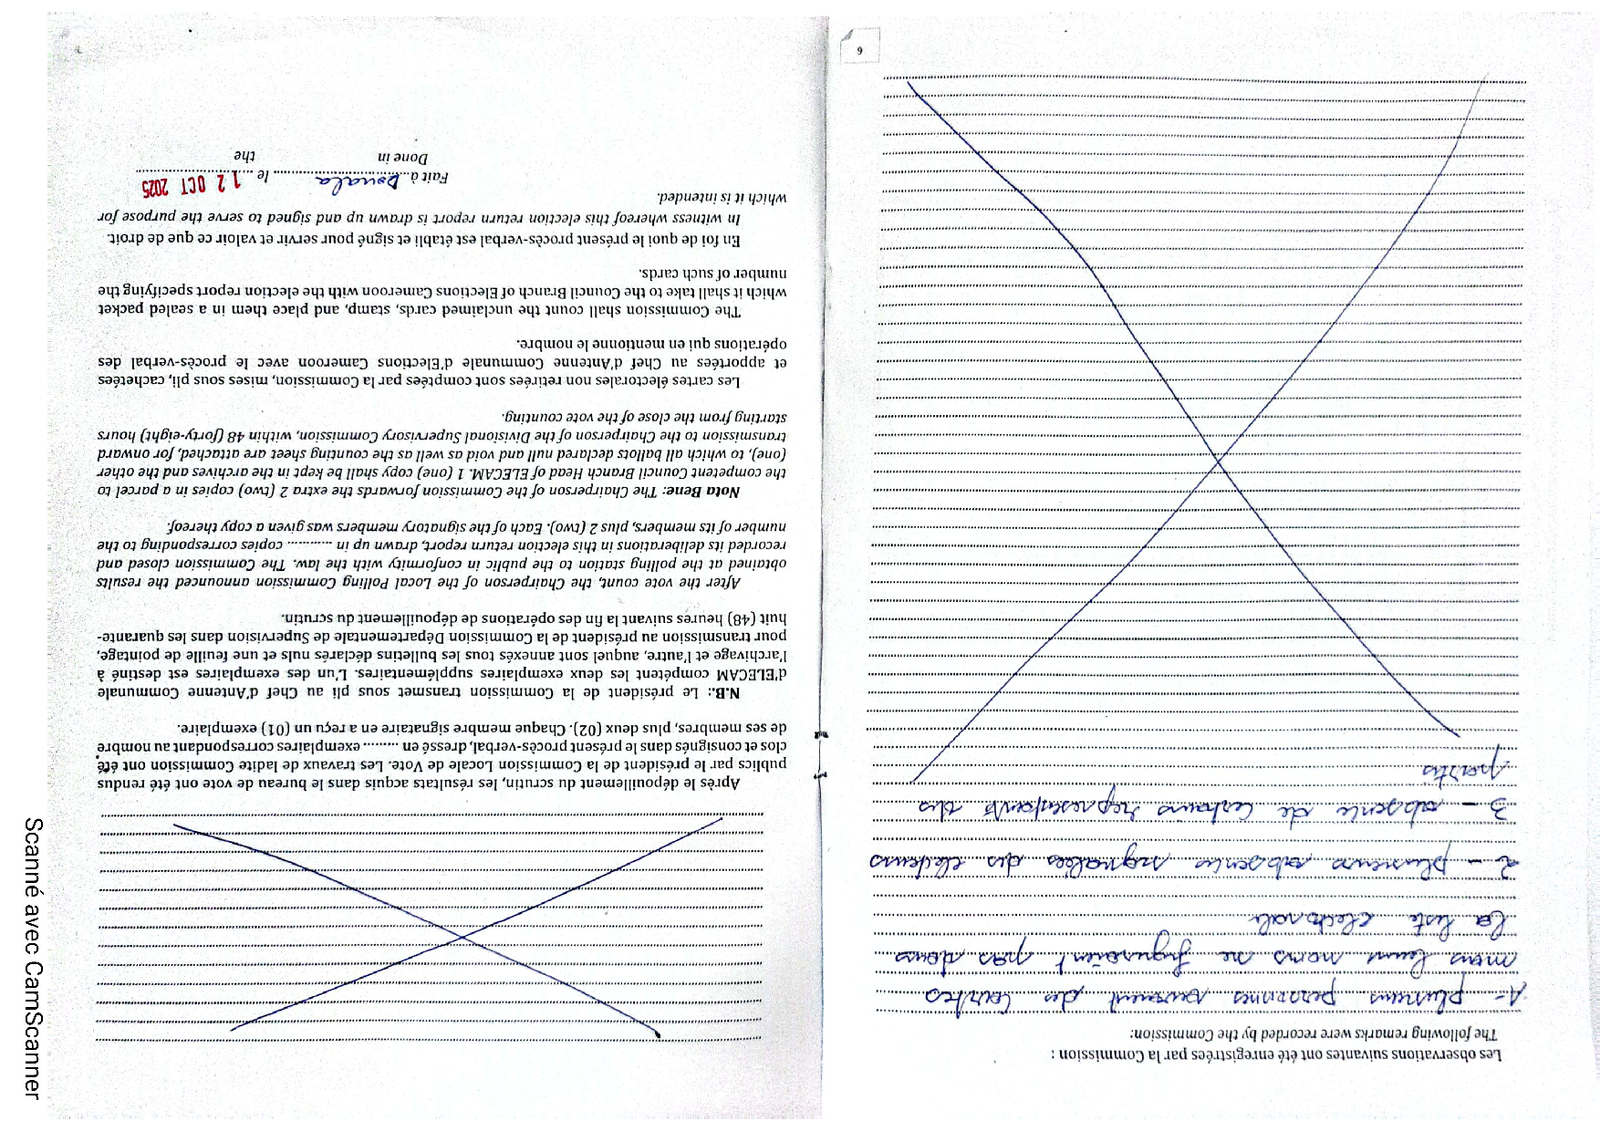 Les observations suivantes ont été enregistrées par la Commission :
The following remarks were recorded by the Commission:
1- plusieurs personnes avaient des cartes
mais leurs noms ne figuraient pas dans
la liste électorale
2 - plusieurs absentes signalées des électeurs
3 - absence de certains représentants des
partis
6
Après le dépouillement du scrutin, les résultats acquis dans le bureau de vote ont été rendus
publics par le président de la Commission Locale de Vote. Les travaux de ladite Commission ont été
clos et consignés dans le présent procès-verbal, dressé en ......... exemplaires correspondant au nombre
de ses membres, plus deux (02). Chaque membre signataire en a reçu un (01) exemplaire.
N.B.: Le président de la Commission transmet sous pli au Chef d'Antenne Communale
d'ELECAM compétent les deux exemplaires supplémentaires. L'un des exemplaires est destiné à
l'archivage et l'autre, auquel sont annexés tous les bulletins déclarés nuls et une feuille de pointage,
pour transmission au président de la Commission Départementale de Supervision dans les quarante-
huit (48) heures suivant la fin des opérations de dépouillement du scrutin.
After the vote count, the Chairperson of the Local Polling Commission announced the results
obtained at the polling station to the public in conformity with the law. The Commission closed and
recorded its deliberations in this election return report, drawn up in ............ copies corresponding to the
number of its members, plus 2 (two). Each of the signatory members was given a copy thereof.
Nota Bene: The Chairperson of the Commission forwards the extra 2 (two) copies in a parcel to
the competent Council Branch Head of ELECAM. 1 (one) copy shall be kept in the archives and the other
(one), to which all ballots declared null and void as well as the counting sheet are attached, for onward
transmission to the Chairperson of the Divisional Supervisory Commission, within 48 (forty-eight) hours
starting from the close of the vote counting.
Les cartes électorales non retirées sont comptées par la Commission, mises sous pli, cachetées
et apportées au Chef d'Antenne Communale d'Elections Cameroon avec le procès-verbal des
opérations qui en mentionne le nombre.
The Commission shall count the unclaimed cards, stamp, and place them in a sealed packet
which it shall take to the Council Branch of Elections Cameroon with the election report specifying the
number of such cards.
En foi de quoi le présent procès-verbal est établi et signé pour servir et valoir ce que de droit.
In witness whereof this election return report is drawn up and signed to serve the purpose for
which it is intended.
Fait à Douala le 12 OCT 2025
Done in the
Scanné avec CamScanner